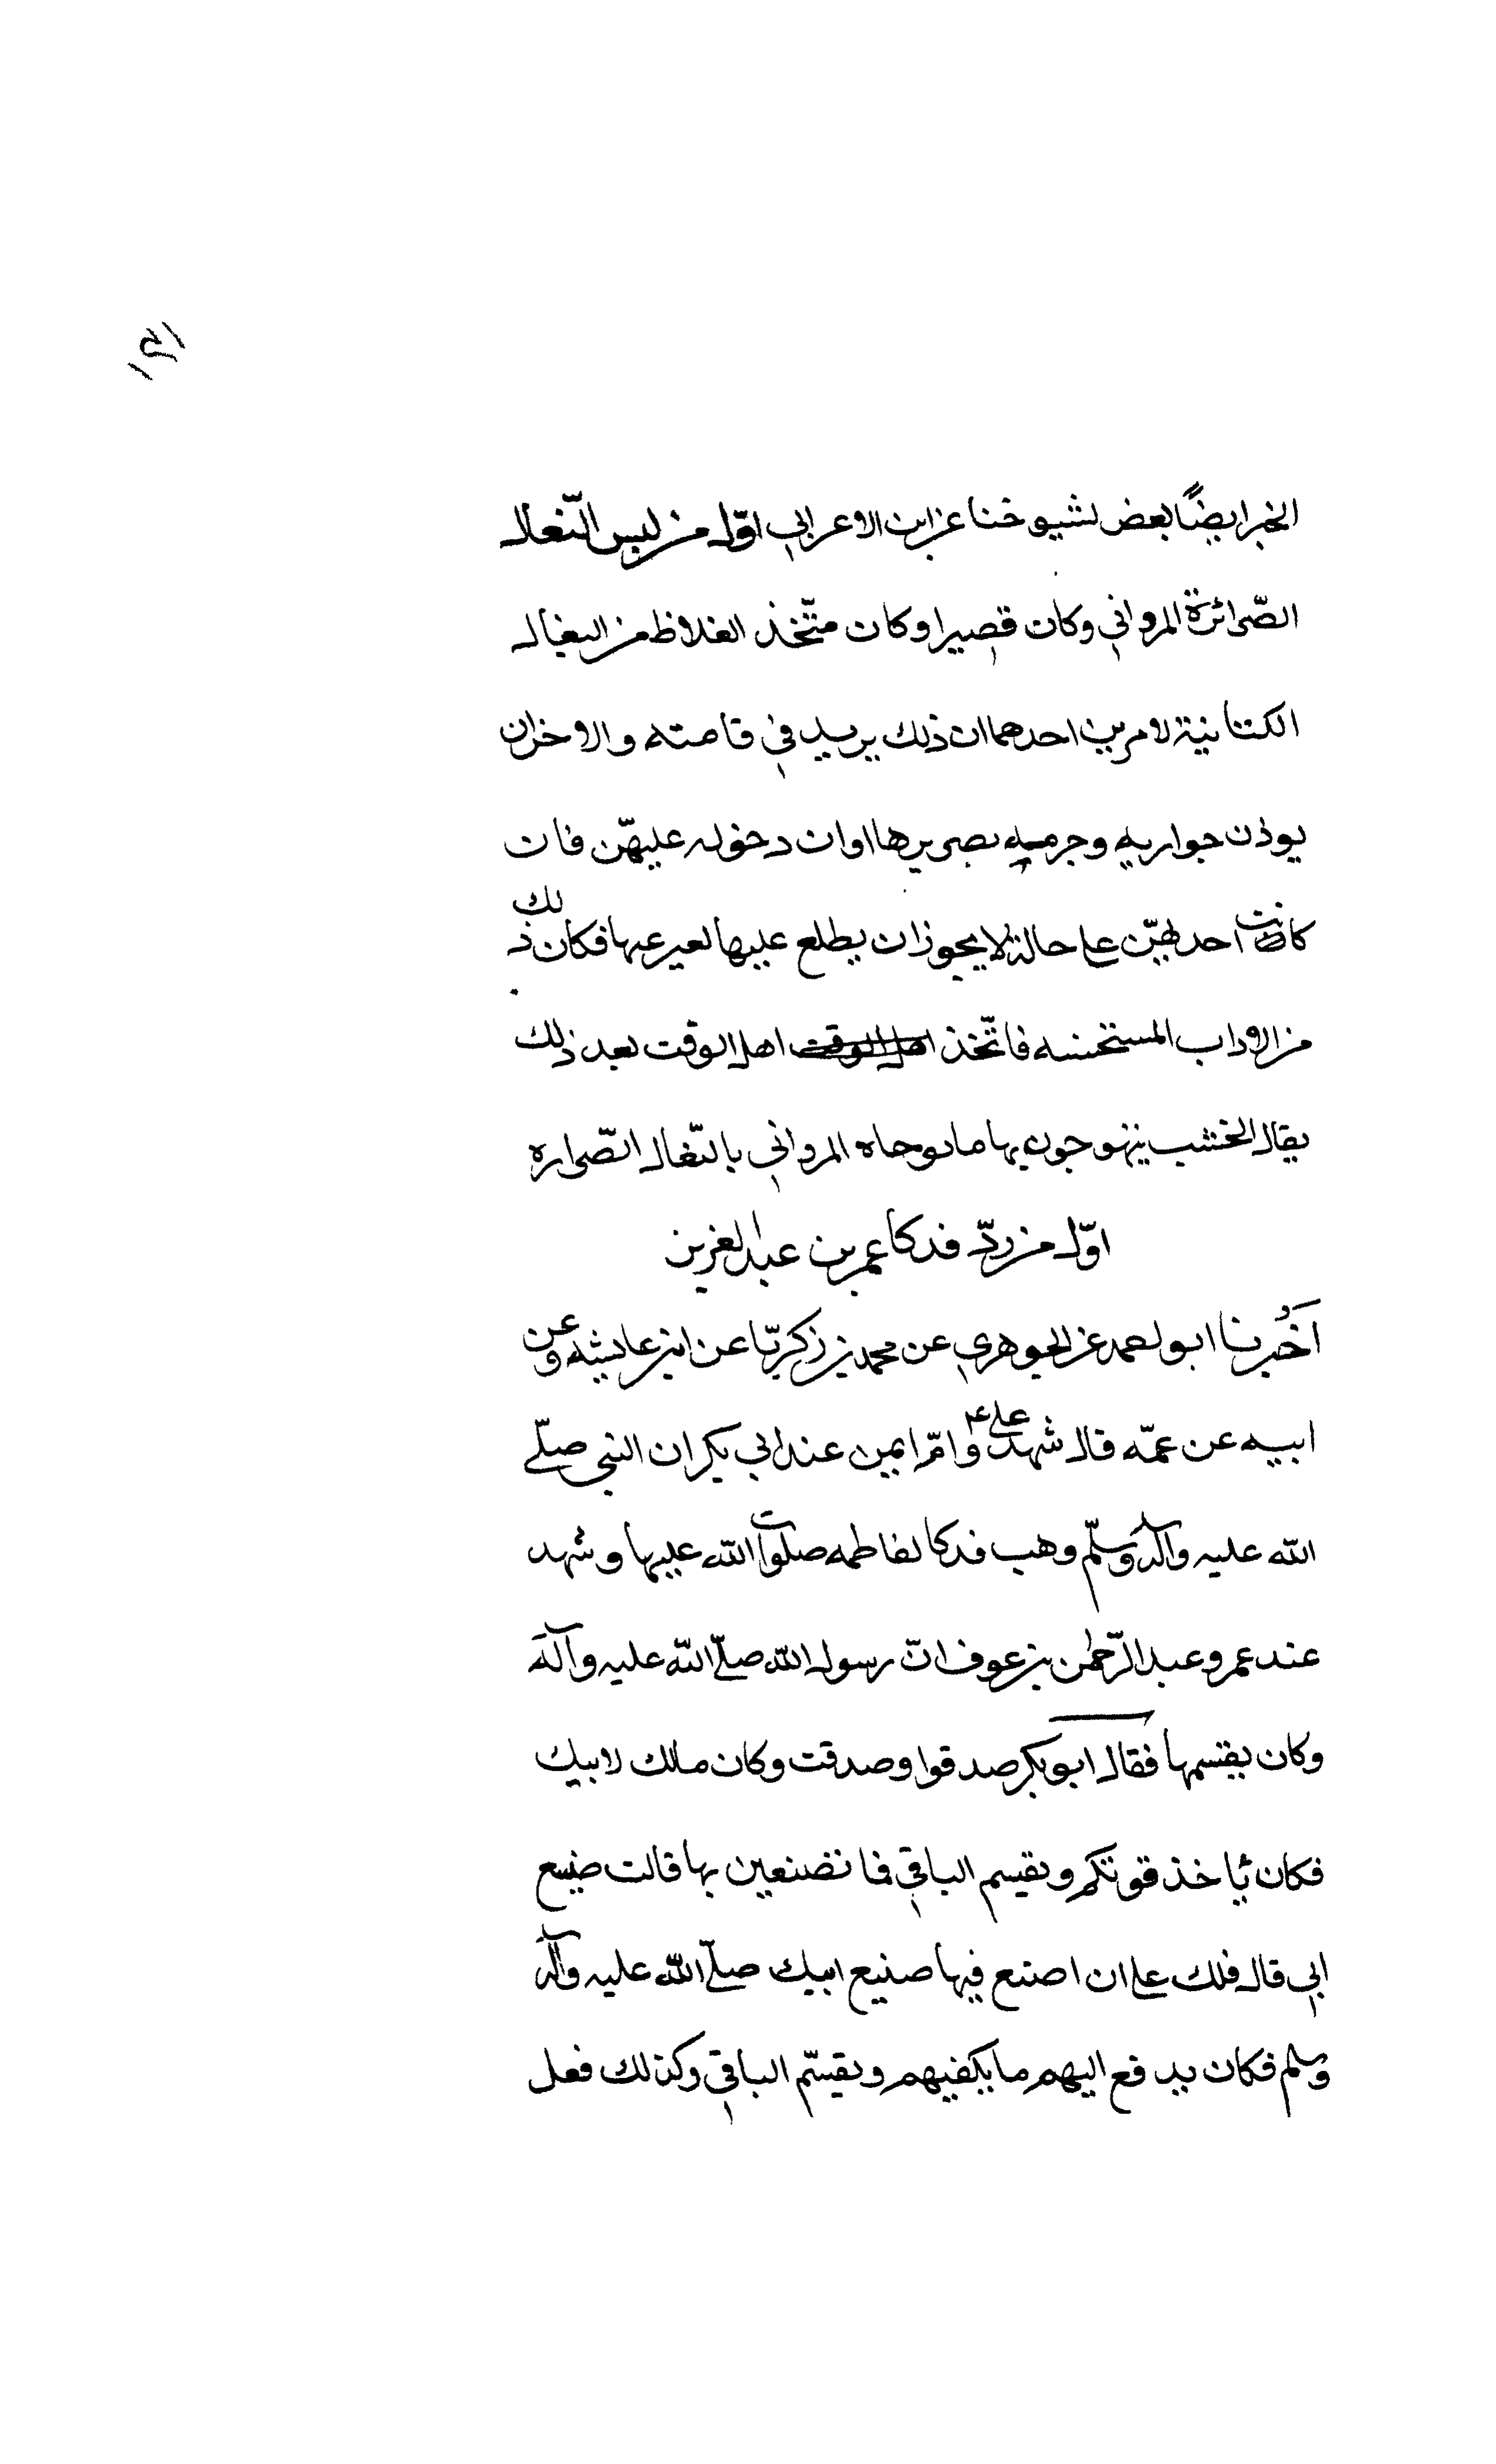 الخبر ايضًا بعض شيوخنا عن ابن الاعرابي اوّل من لبس النّعال
الصّرائرة المرواني وكان قصيرا وكان متّخذ الغلاظ من البغال
الكتانية لامرين احدهما ان ذلك يريد في قامته والاخران
يوذن جواريه وجرميه بصريرها اوان دخوله عليهنّ فان
كانت احديهنّ على حالة لا يجوز ان يطلع عليها لغير عها فكان ذلك
من الاداب المستحسنه فاتّخذ اهل الوقت بعد ذلك
بقال الخشب ينهوجون بها ما نوحاه المرواني بالنّغال الصّراره
اوّل من ردّ فدكا عمر بن عبد العزيز
اَخُبرنا ابو احمد عن الجوهري عن محمد بن زكريّا عن ابن عايشه وعن
ابيه عن عمّه قال شهد علي ع وامّ ايمن عند ابي بكر ان النبي صلّى
الله عليه وآله وسلّم وهب فدكا لفاطمه صلوات الله عليها وشهد
عند عمر وعبد الرّحمن بن عوف انّ رسول الله صلّى الله عليه وآله
وكان يقسمها فقال ابو بكر صدقوا وصدقت وكان مالك لابيك
فكان ئاخذ قوتكم ويقسم الباقي فما تضنعين بها قالت ضيع
ابي قال فلك على ان اصنع فيها صنيع ابيك صلّى الله عليه وآله
وسلم فكان يدفع اليهم ما يكفيهم ويقسّم الباقي وكذلك فعل